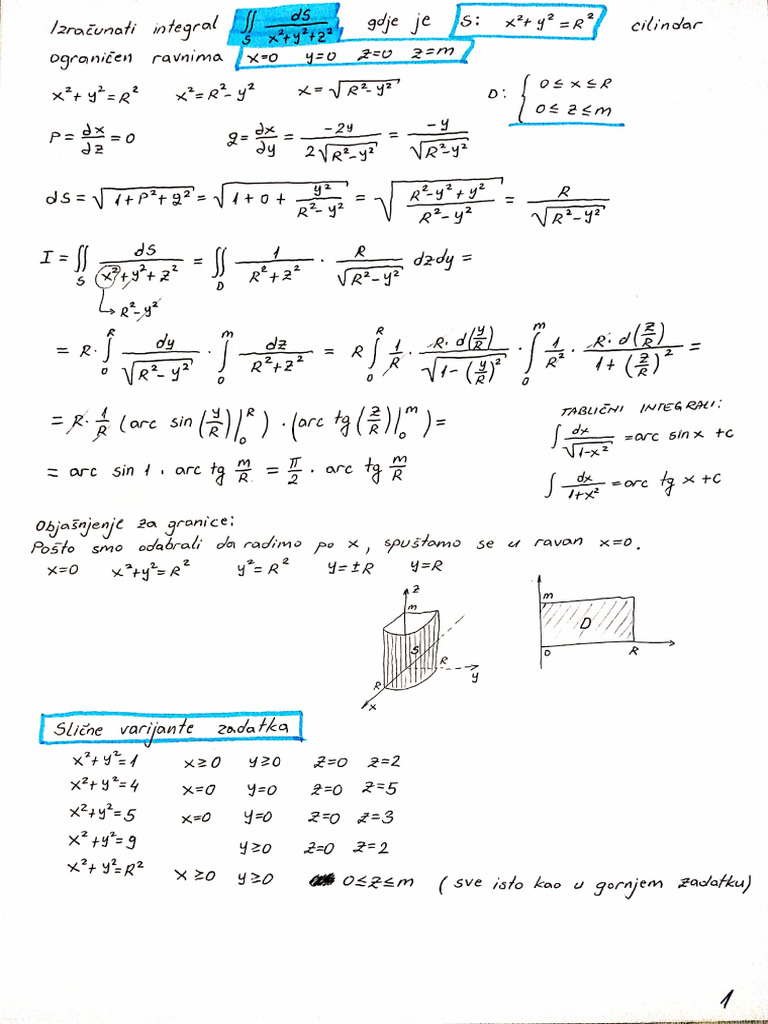 Izračunati integral ∬_S dS/(x²+y²+z²) gdje je S: x²+y²=R² cilindar
ograničen ravnima x=0 y=0 z=0 z=m
x²+y²=R² x²=R²-y² x=√(R²-y²) D: { 0≤x≤R
0≤z≤m
P=∂x/∂z=0 q=∂x/∂y=-2y/(2√(R²-y²))=-y/√(R²-y²)
dS=√(1+P²+q²)=√(1+0+y²/(R²-y²))=√((R²-y²+y²)/(R²-y²))=R/√(R²-y²)
I=∬_S dS/(x²+y²+z²)=∬_D 1/(R²+z²)·R/√(R²-y²) dzdy=
→R²-y²
=R·∫₀^R dy/√(R²-y²)·∫₀^m dz/(R²+z²)=R∫₀^R 1/R·R·d(y/R)/√(1-(y/R)²)·∫₀^m 1/R²·R·d(z/R)/(1+(z/R)²)=
=R·1/R (arc sin(y/R)|₀^R)·(arc tg(z/R)|₀^m)=
TABLIČNI INTEGRALI:
∫dx/√(1-x²)=arc sinx+c
=arc sin1·arc tg m/R=π/2·arc tg m/R
∫dx/(1+x²)=arc tg x+c
Objašnjenje za granice:
Pošto smo odabrali da radimo po x, spuštamo se u ravan x=0.
x=0 x²+y²=R² y²=R² y=±R y=R
z
m
S
R
R
y
x
m
D
0
R
Slične varijante zadatka
x²+y²=1 x≥0 y≥0 z=0 z=2
x²+y²=4 x=0 y=0 z=0 z=5
x²+y²=5 x=0 y=0 z=0 z=3
x²+y²=9 y≥0 z=0 z=2
x²+y²=R² x≥0 y≥0 0≤z≤m (sve isto kao u gornjem zadatku)
1